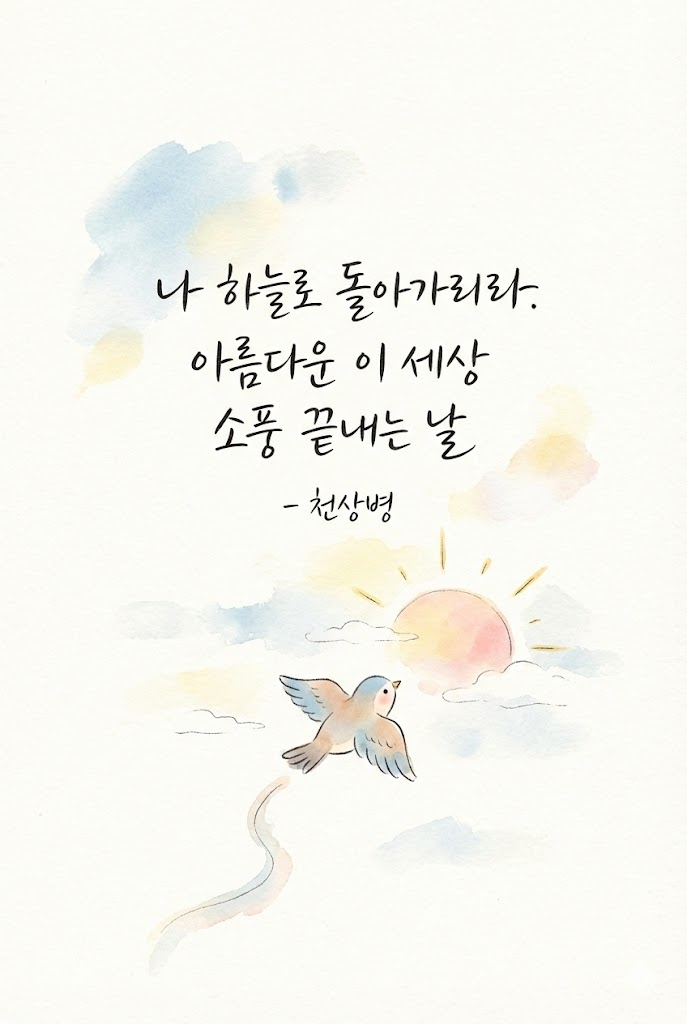 나 하늘로 돌아가리라.
아름다운 이 세상
소풍 끝내는 날
- 천상병